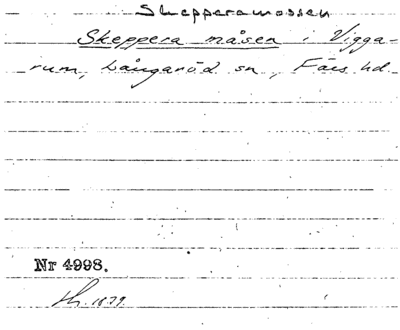 Skepperamossen
Skeppera måsen i Vigga-
rum, Långaröd sn, Färs hd
Nr 4998.
1879.